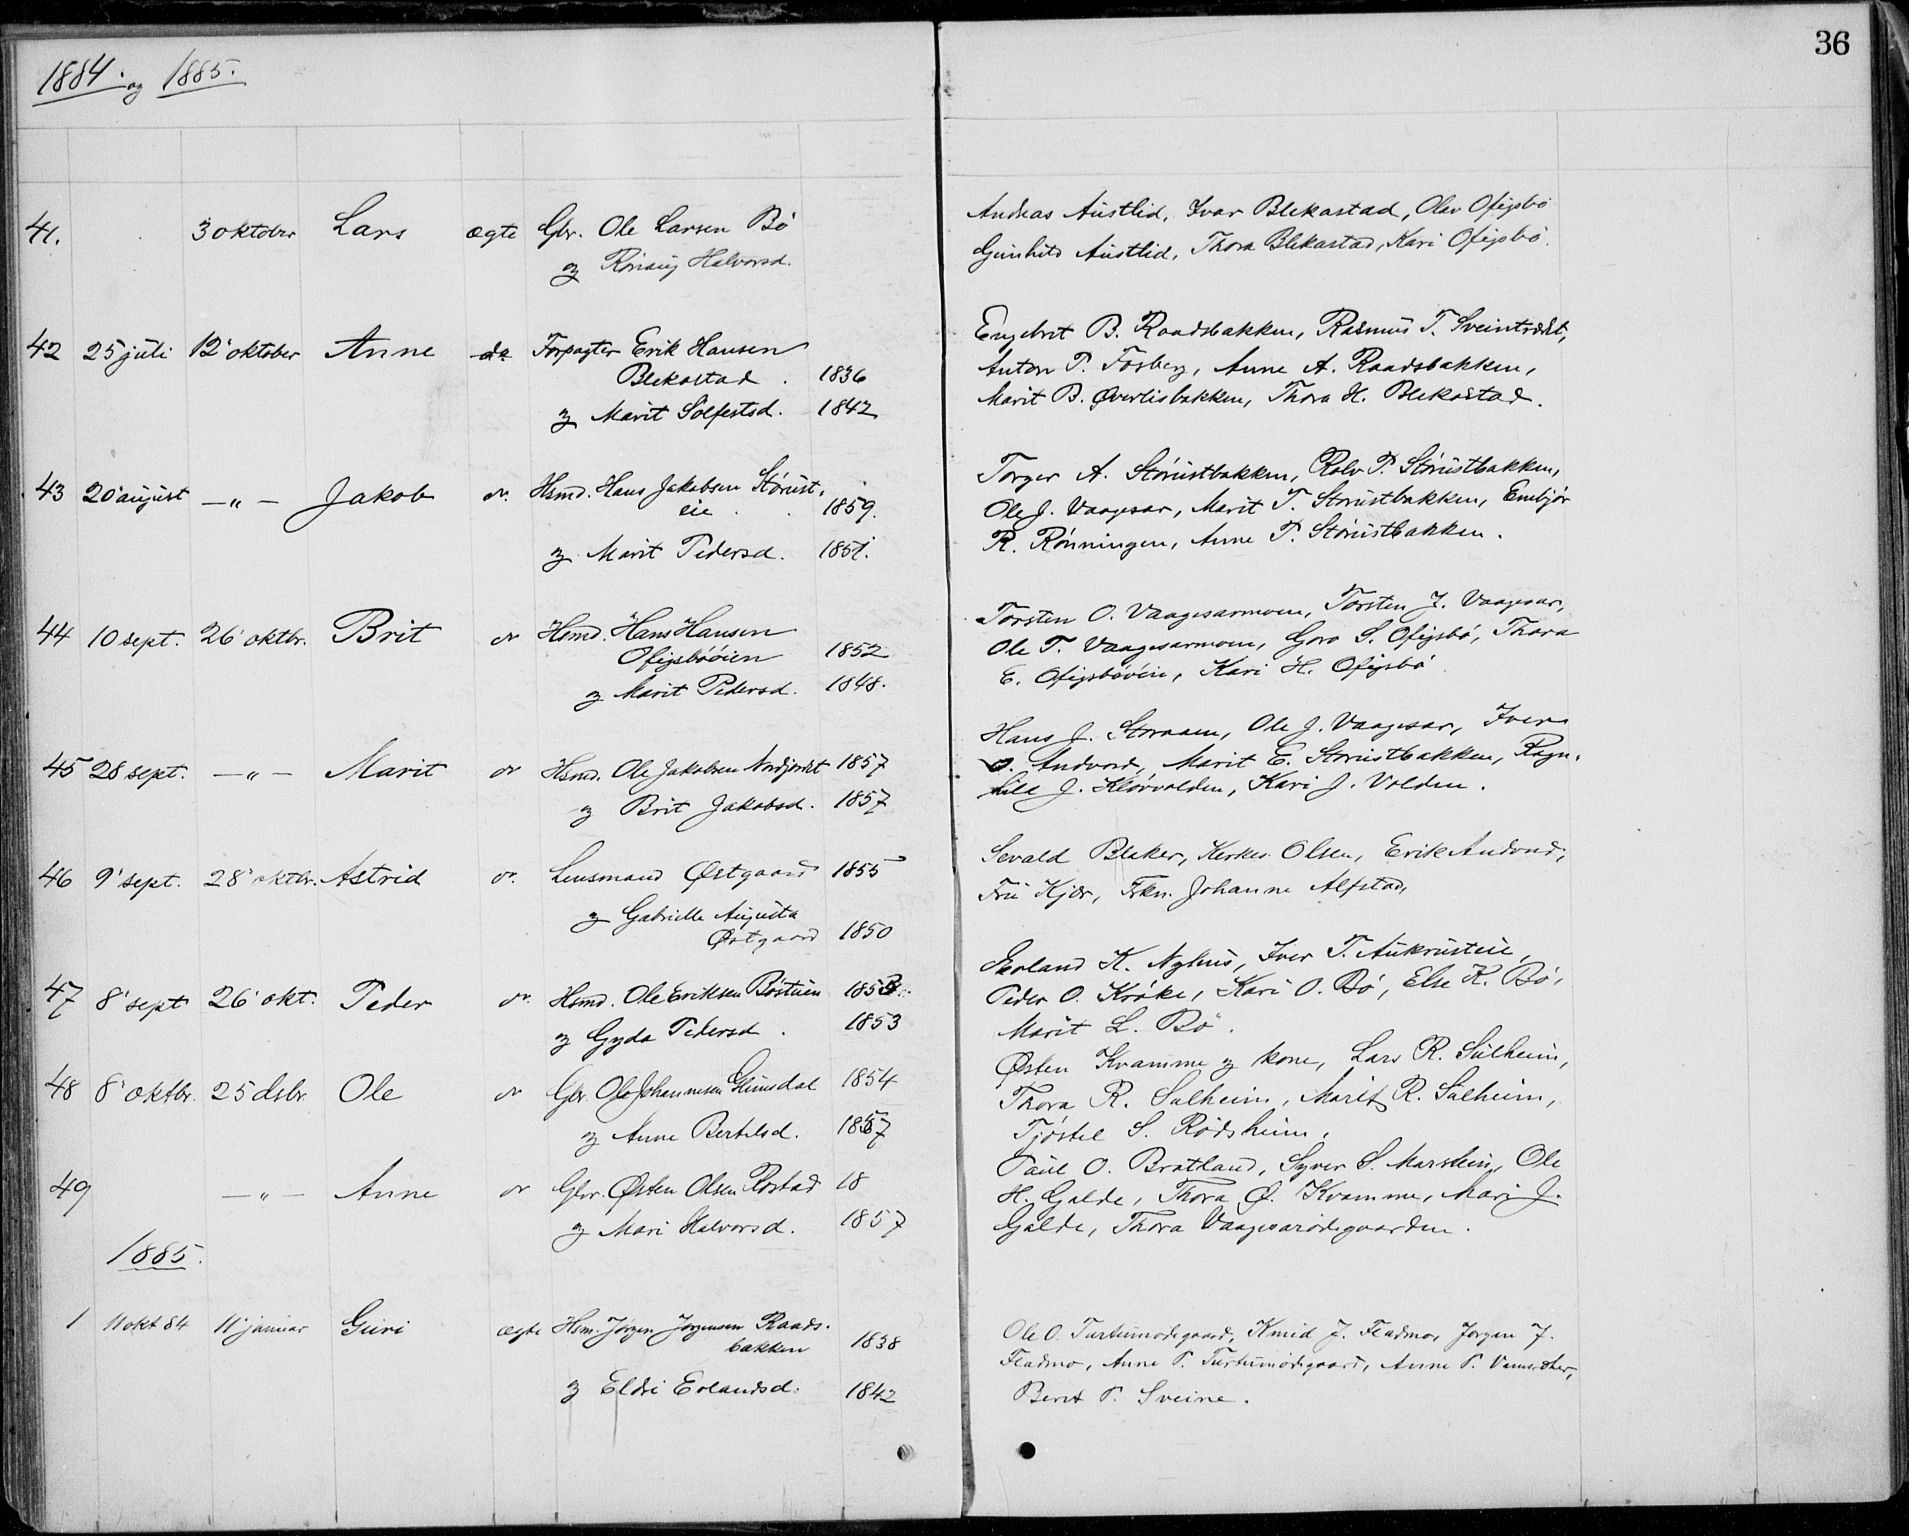 1884. og 1885.
36
41. 3 oktober Lars ægte Gbr. Ole Larsen Bö
og Rönnaug Halvorsd.
Andreas Austlid, Ivar Blekastad, Olav Ofigsbö
Gunhild Austlid, Thora Blekastad, Kari Ofigsbö.
42 25 juli 12' oktober Anne do Forpagter Erik Hansen
Blekastad . 1836
og Marit Solfestsd. 1842
Engebret B. Raadsbakken, Rasmus T.
Anton P. Fosberg, Anne A. Raadsbakken,
Marit B. Øverlisbakken, Thora H. Blekastad.
43 20' august —"— Jakob Hsmd. Hans Jakobsen Storust.
eie . . 1859.
og Marit Pedersd. 1851.
Torger A. Storustbakken, Rolv P. Storustbakken,
Ole J. Vaagesar, Marit T. Storustbakken, Embjör
R. Rönningen, Anne P. Storustbakken.
44 10 sept. 26' oktbr. Brit Hsmd. Hans Hansen
Ofigsbööien 1852
og Marit Pedersd. 1848.
Torsten O. Vaagesarmoen, Torsten J. Vaagesar,
Ole T. Vaagesarmoen, Goro S. Ofigsbö, Thora
E. Kari H. Ofigsbö
45 28 sept. —"— Marit Hsmd. Ole Jakobsen 1857
og Brit Jakobsd. 1857
Hans J. Storaaen, Ole J. Vaagesar, Iver
O. Andvord, Marit E. Storustbakken, Ragn-
hild J. Klövvolden, Kari J. Volden.
46 9' sept. 28' oktbr. Astrid Lensmand Østgaard 1855
og Gabrielle Augusta
Østgaard 1850
Sevald Blaker, Olsen, Erik Andvord,
Fru Kjær, Frkn. Johanne Alfstad,
47 8' sept 26' okt. Peder Hsmd. Ole Eriksen Böstuen 1853.
og Gyda Pedersd . 1853
Erland K. Nyhus, Iver T. Aukrusteie,
Peder O. Kröke, Kari O. Bö, Else K. Bö,
Marit L. Bö.
48 8' oktbr. 25 dsbr. Ole Gbr. Ole Johannesen Glimsdal 1854
og Anne Bertelsd. 1857
Østen Kvamme og kone, Lars R. Sulheim,
Thora R. Sulheim, Marit R. Sulheim,
Tjöstel S. Rödsheim.
49 —"— Anne Gbr. Østen Olsen Rostad 18
og Mari Halvorsd. 1857
Paul O. Bratland, Syver S. Marstein, Ole
H. Galde, Thora Ø. Kvamme, Mari J.
Galde, Thora Vaagesarödegaarden.
1885.
1 11 okt 84 11' januar Guri ægte Hsm. Jörgen Jörgensen Raads-
bakken 1838
og Eldri Erlandsd. 1842
Ole O. Turtumödegaard, Knud J. Fladmo, Jörgen J.
Fladmo, Anne P. Turtumödegaard, Anne P.
Berit P. Sveine.